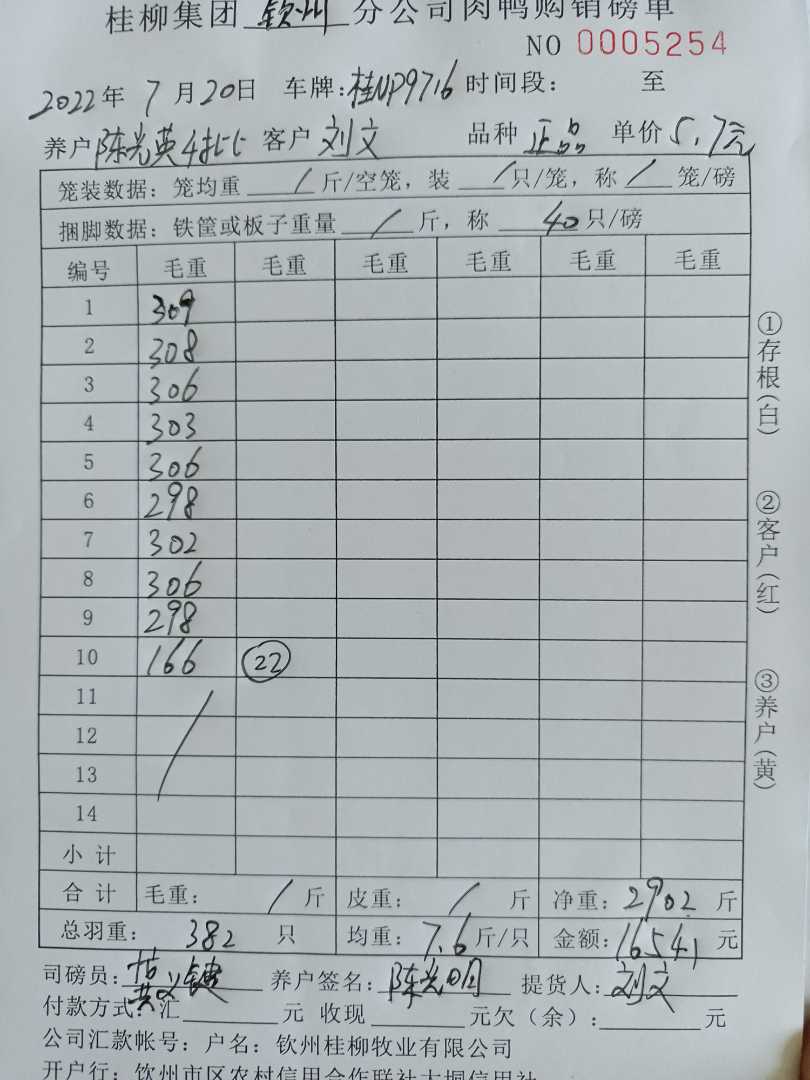 桂柳集团 钦州 分公司肉鸭购销磅单
NO 0005254
2022年 7月20日 车牌:桂NP9716 时间段: 至
养户 陈光英4批 客户 刘文 品种 正品 单价 5.7元
笼装数据: 笼均重 / 斤/空笼, 装 / 只/笼, 称 / 笼/磅
捆脚数据: 铁筐或板子重量 / 斤, 称 40 只/磅
编号 毛重 毛重 毛重 毛重 毛重 毛重
1 309
2 308
3 306
4 303
5 306
6 298
7 302
8 306
9 298
10 166 22
11
12
13
14
小计
合计 毛重: / 斤 皮重: / 斤 净重: 2902 斤
总羽重: 382 只 均重: 7.6 斤/只 金额: 16541 元
司磅员: 养户签名: 陈光明 提货人: 刘文
付款方式: 汇 元 收现 元欠(余): 元
公司汇款帐号: 户名: 钦州桂柳牧业有限公司
开户行: 钦州市区农村信用合作联社大垌信用社
①存根(白)
②客户(红)
③养户(黄)